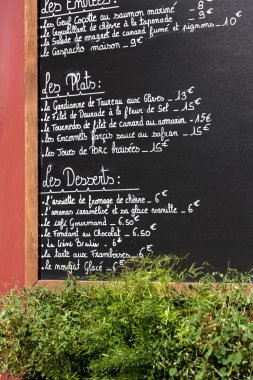 Les Entrées :
. Les Oeuf Cocotte au saumon mariné _ 8€
. Le Croustillant de chèvre à la tapenade _ 9€
. La Salade de magret de canard fumé et pignons _ 10€
. Le Gaspacho maison _ 9€
Les Plats :
. La Gardianne de Taureau aux Olives _ 13€
. Le Filet de Daurade à la fleur de Sel _ 15€
. Le Tournedos de filet de canard au romarin _ 15€
. Les Encornets farçis sauce au safran _ 15€
. Les Joues de Porc braisées _ 15€
Les Desserts :
. L'assiette de fromage de chèvre _ 6€
. L'ananas caramélisé et sa glace vanille _ 6€
. Le café Gourmand _ 6.50€
. Le Fondant au Chocolat _ 6.50€
. La Crème Brulée _ 6€
. La tarte aux Framboises _ 6€
. Le nougat Glacé _ 6€